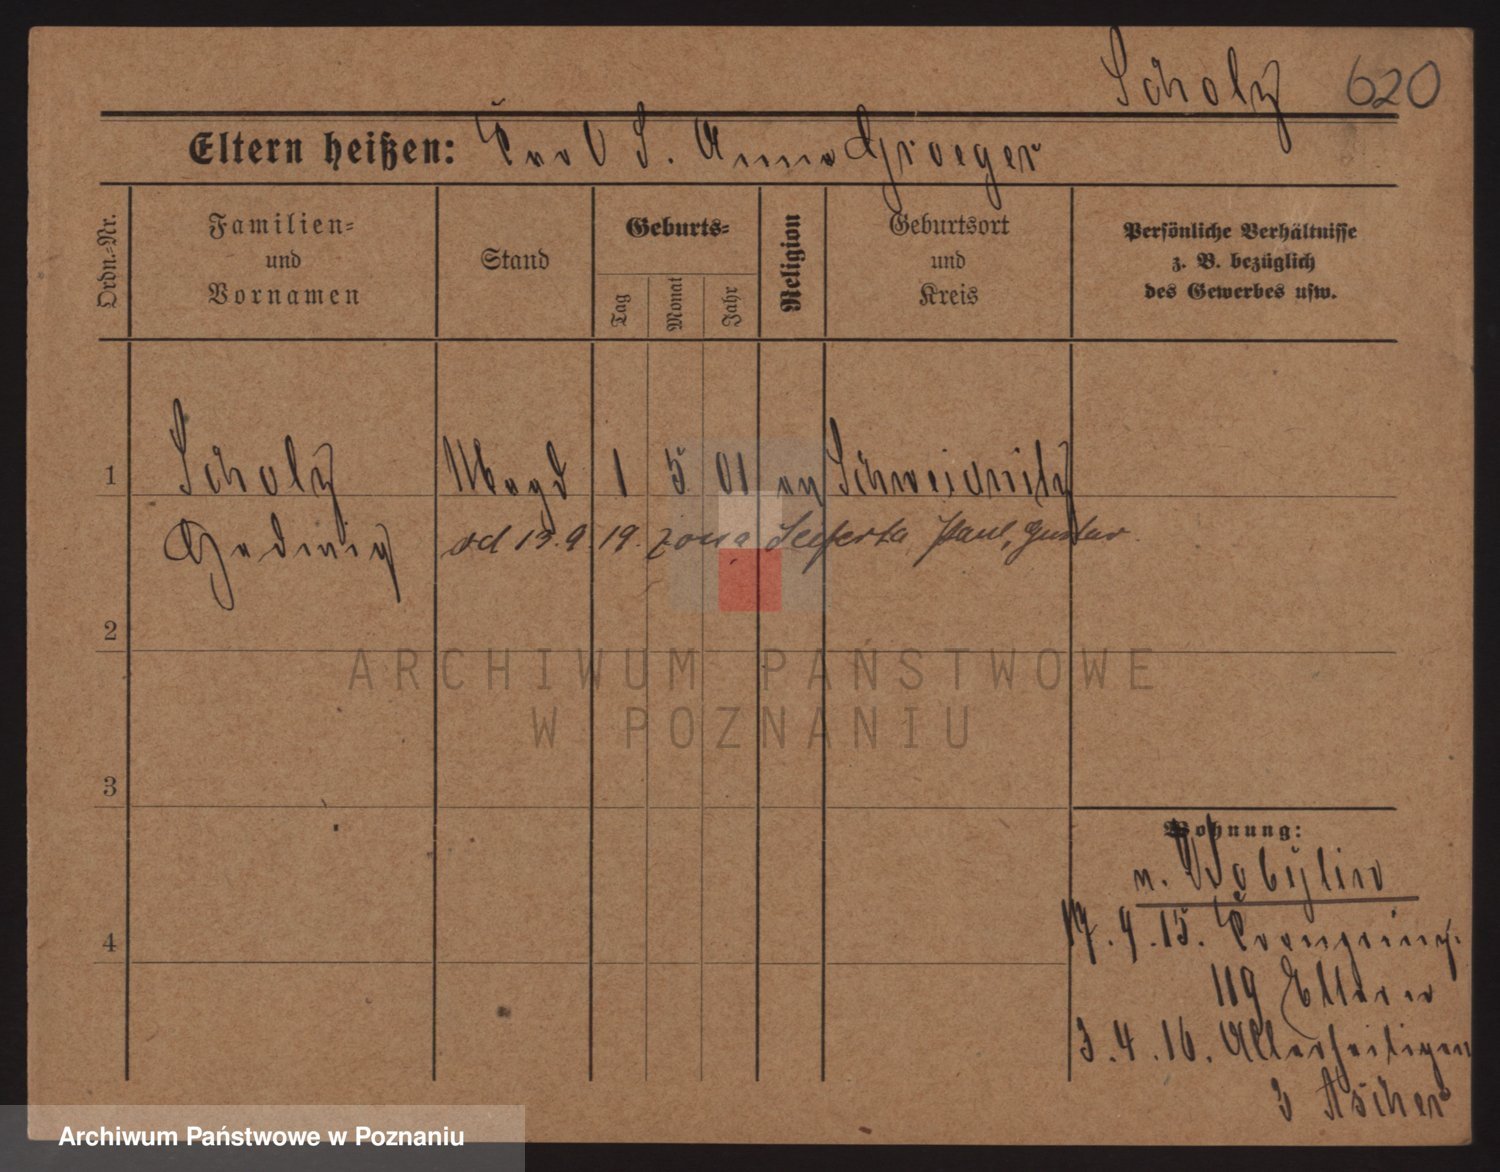 Scholz 620
Eltern heißen: Karl S. Anna Groeger
Ordn.-Nr.
Familien-
und
Vornamen
Stand
Geburts-
Tag
Monat
Jahr
Religion
Geburtsort
und
Kreis
Persönliche Verhältnisse
z. B. bezüglich
des Gewerbes usw.
1 Scholz Magd 1 5 01 ev Schweidnitz
Hedwig od 13.9.19. żona Seiferta, Paul, Gustav
2
3
4
Wohnung:
n. Kobylin
17.9.15. Kronprinz.
119 Eltern
3.4.16. Allerheiligen
3 Ascher
ARCHIWUM PAŃSTWOWE
W POZNANIU
Archiwum Państwowe w Poznaniu